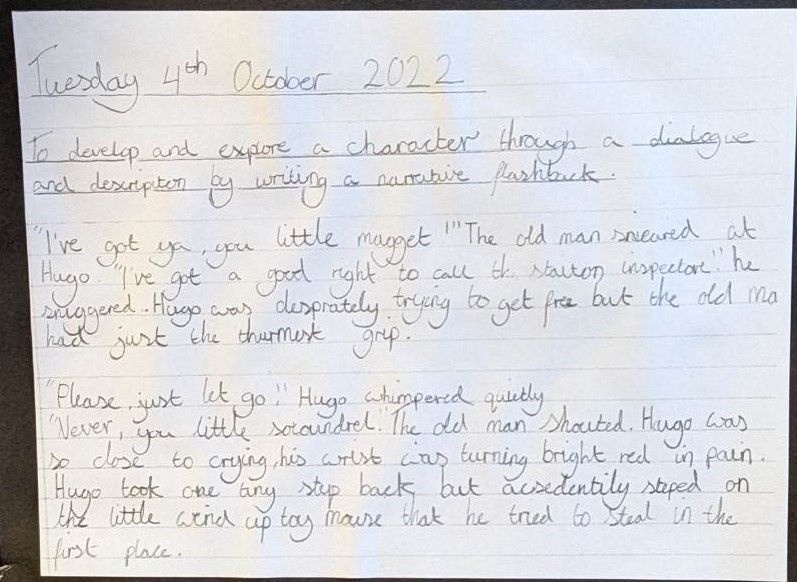 Tuesday 4th October 2022
To develop and explore a character through a dialogue
and descripiton by writing a narrative flashback.
"I've got ya, you little magget!" The old man snieared at
Hugo. "I've got a good right to call the staiton inspector." he
sniggered. Hugo was desprately trying to get free but the old ma
had just the thurmest grip.
"Please, just let go!" Hugo whimpered quietly
"Never, you little scoundrel." The old man shouted. Hugo was
so close to crying, his wrist was turning bright red in pain.
Hugo took one tiny step back, but acsedentily steped on
the little wind up toy mouse that he tried to steal in the
first place.